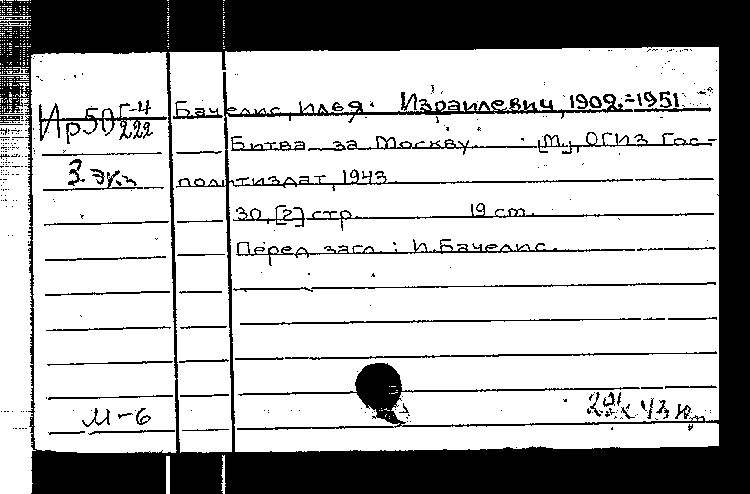 Ир50 Г-4/222 Бачелис, Илья Израилевич, 1902-1951
Битва за Москву. [М.], ОГИЗ Гос-
3 экз. политиздат, 1943
30, [2] стр. 19 cm.
Перед загл.: И. Бачелис.
М-6